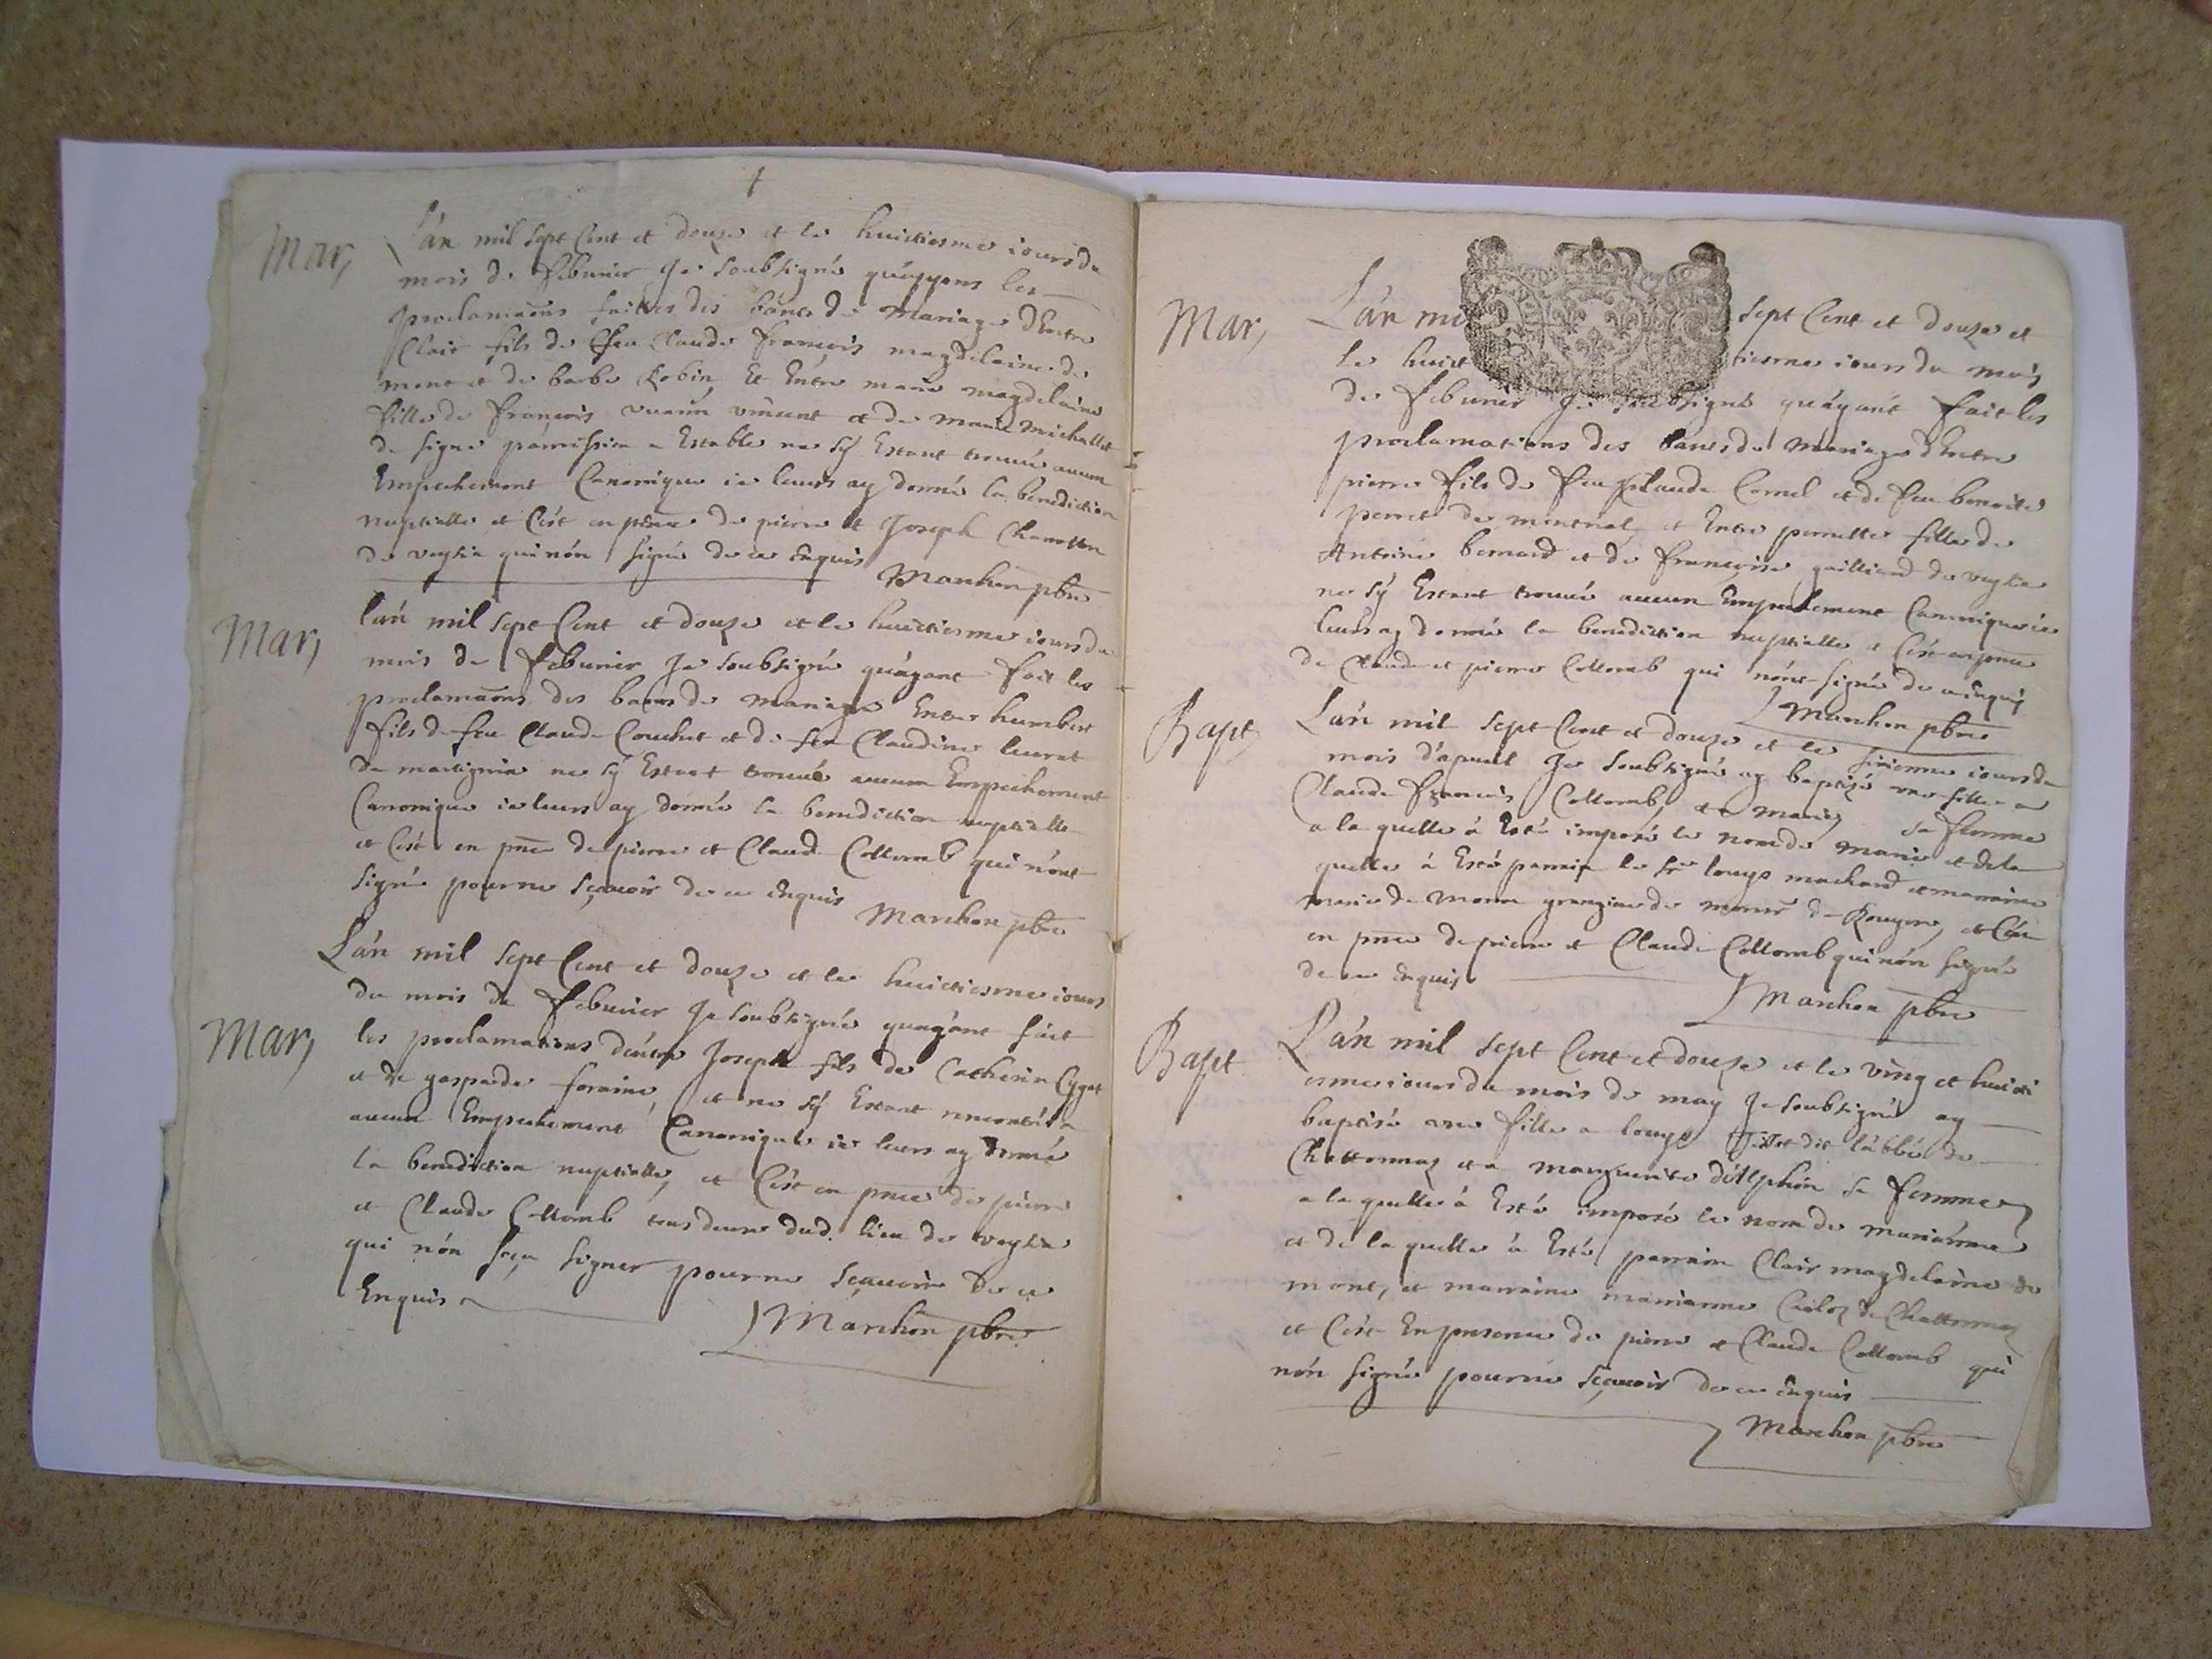 Mar,
L'án mil sept Cent et douze et le huictiesme iours du
mois de febunier Je soubsigné qu'ayyans les
proclamaõns faittes des bancs de Mariage d'Entre
Clair fils de feu Claude françois magdelaine de
mont et de barbe Robin Et Entre marie magdelaine
fille de françois vincent et de marie michallet
de signe parroissien a Estable ne s'ÿ Estant trouué aucun
Empechement Canonique ie leurs ay donné la benediction
nuptialle et C'ést en pñce de pierre et Joseph Chanosson
de veyzia qui nón signé de ce Enquis
Marchon pbre
Mar,
l'án mil sept Cent et douze et le huictiesme iours du
mois de febunier Je soubsigné qu'áyant fait les
proclamaõns des bancs de Mariage Entre humbert
fils de feu Claude Couchet et de feu Claudine
de martignia ne s'ÿ Estant trouué aucun Empechement
Canonique ie leurs ay donné la benediction nuptialle
et C'ést en pñce de pierre et Claude Collomb qui n'ónt
signé pourne sçauoir de ce Enquis
Marchon pbre
Mar,
L'án mil sept Cent et douze et le huictiesme iours
du mois de febunier Je soubsigné quayánt fait
les proclamations d'éntre Joseph fils de Catherin Cyget
et de gasparde foraine, et ne s'ÿ Estant rencontré
aucun Empechement Canonique ie leurs ay donné
la benediction nuptialle, et C'ést en pnce de pierre
et Claude Collomb tous deux dud. lieu de veyzia
qui nón sçeu signer pourne sçauoire de ce
Enquis
Marchon pbre
Mar,
L'án mil sept Cent et douze et
le huict tiesme iours du mois
de febunier Je soubsigné qu'áyánt fait les
proclamations des bancs de Mariage d'Entre
pierre fils de feu Claude Comel et de feu benoite
perret de montrial, et Entre pernette fille de
Antoine bernard et de françoise gailliard de veyzia
ne s'ÿ Estant trouué aucun Empechement Canonique ie
leurs ay donné la benediction nuptialle et C'ést en pnce
de Claude et pierre Collomb qui n'ónt signé de ce Enquis
Marchon pbre
Bapt
L'án mil sept Cent et douze et le sixieme iours du
mois d'apuril Je soubsigné ay baptizé une fille a
Claude françois Collomb, et a Marie sa femme
a la quelle à Esté imposé le nom de Marie et de la
quelle à Esté parrain le Sr louys machard et marraine
marie de Monn grangine de monsr de Rougen, et C'ést
en pnce de pierre et Claude Collomb qui nón signé
de ce Enquis
Marchon pbre
Bapt
L'án mil sept Cent et douze et le ving et huicti
esme iours du mois de may Je soubsigné ay
baptisé une fille a louys Jillet dit l'abbé de
Chattonnaz et a marguerite délphin sa femme
a la quelle à Esté imposé le nom de mariánne
et de la quelle à Esté parrain Clair magdelaine de
mont, et marraine marianne de Chattonnaz
et C'ést En presence de pierre et Claude Collomb qui
nón signé pourne sçauoir de ce Enquis
Marchon pbre